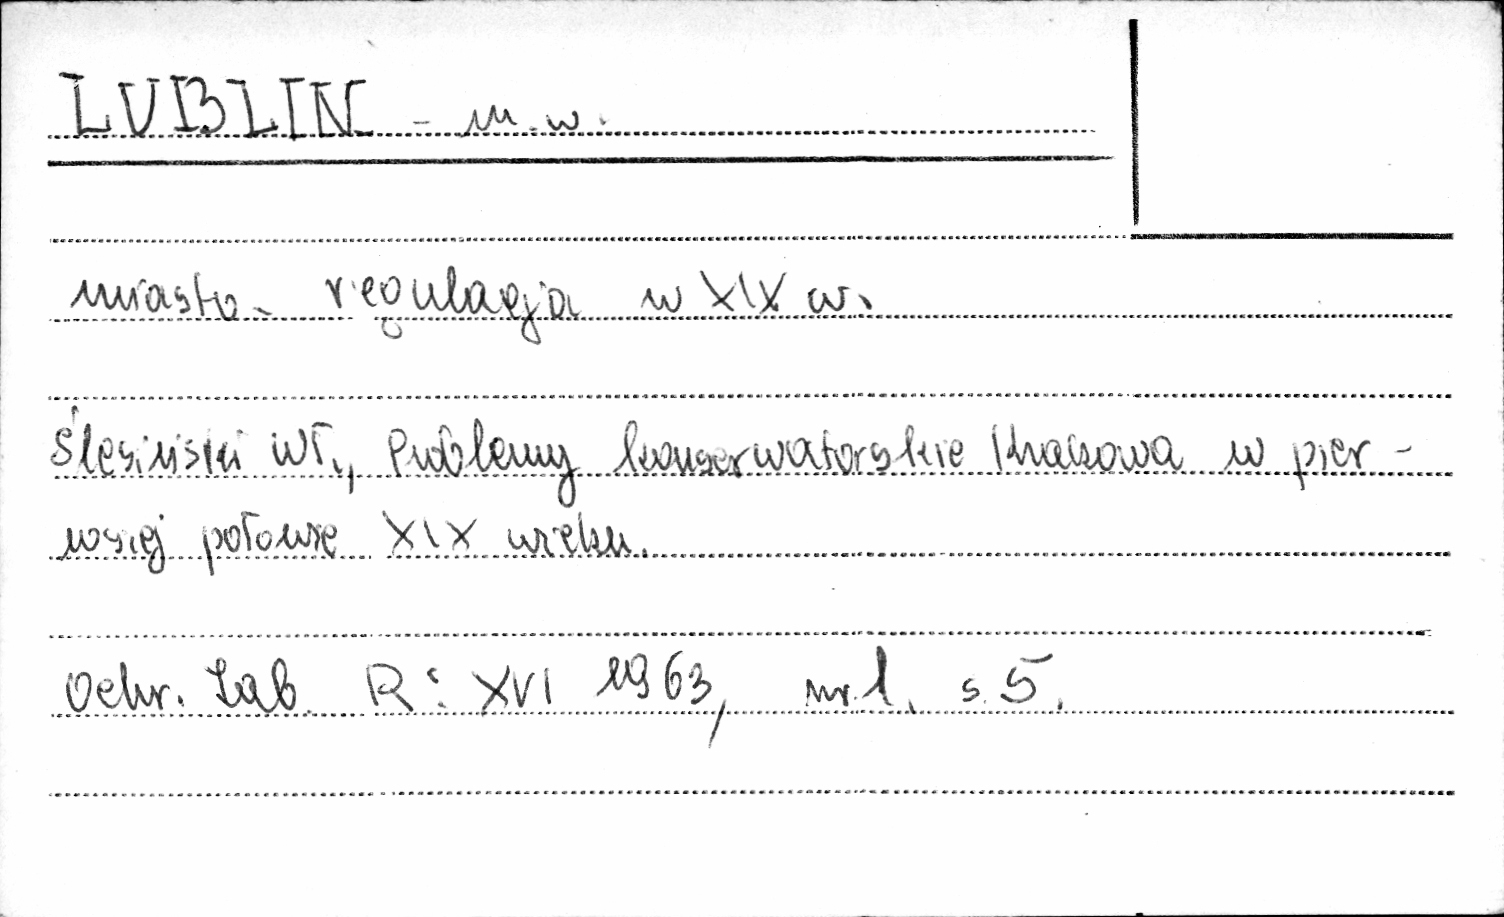 LUBLIN - m.w.
miasto - regulacja w XIX w.
Ślesiński Wł., Problemy konserwatorskie Krakowa w pier-
wszej połowie XIX wieku.
Ochr. Zab. R: XVI 1963, nr 1, s. 5.